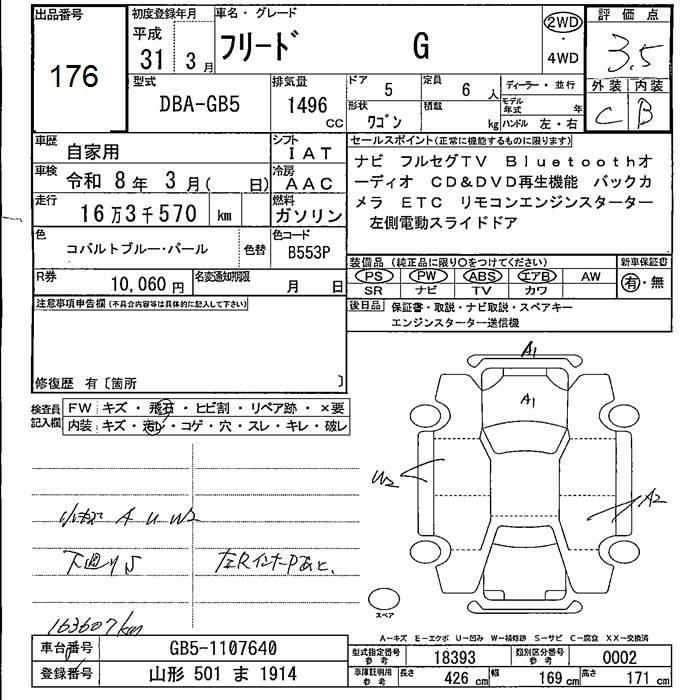 出品番号
176
初度登録年月
平成
31 3月
車名・グレード
フリード G
2WD
・
4WD
評価点
3.5
外装 内装
C B
型式
DBA-GB5
排気量
1496 CC
ドア 5
定員 6 人
ディーラー・並行
形状 ワゴン
積載 kg
モデル年式 年
ハンドル 左・右
車歴 自家用
シフト IAT
車検 令和 8年 3月( 日)
冷房 AAC
走行 16万3千570 km
燃料 ガソリン
色 コバルトブルー・パール
色替
色コード B553P
R券 10,060円
名変通知期限 月 日
セールスポイント(正常に機能するものに限ります)
ナビ フルセグTV Bluetoothオ
ーディオ CD&DVD再生機能 バックカ
メラ ETC リモコンエンジンスターター
左側電動スライドドア
装備品(純正品に限り○をつけてください)
PS PW ABS エアB AW
SR ナビ TV カワ
新車保証書
有・無
後日品 保証書・取説・ナビ取説・スペアキー
エンジンスターター送信機
注意事項申告欄(不具合内容等は具体的に記入して下さい)
修復歴 有〔箇所 〕
検査員
記入欄
FW キズ・飛石・ヒビ割・リペア跡・×要
内装 キズ・汚レ・コゲ・穴・スレ・キレ・破レ
小キズ A U W2
下廻りS
左RインナーPあと、
163607km
A1
A1
W2
A2
スペア
A-キズ E-エクボ U-凹み W-補修跡 S-サビ C-腐食 XX-交換済
車台番号 GB5-1107640
登録番号 山形 501 ま 1914
型式指定番号
参考
18393
類別区分番号
参考
0002
車庫証明用
参考
長さ 426 cm
幅 169 cm
高さ 171 cm